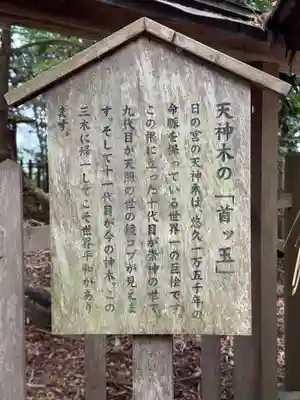 天神木の「首ッ玉」
日の宮の天神木は悠久一万五千年の
命脈を保っている世界一の巨桧です。
この根に立った十代目が崇神の世で、
九代目が天照の世の鏡コブが見えま
す。そして十一代目が今の神木。この
三木に帰一してこそ世界平和があり
ます。